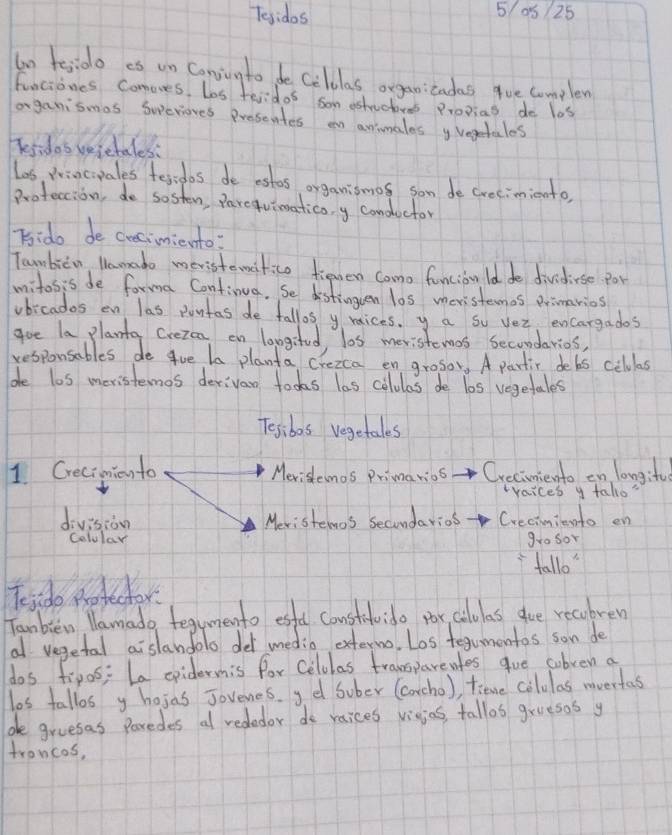 Tejidos
5/05/25
Un tejido es un conjunto de Células organizadas que complen
funciónes comunes. Los tejidos son estructures Propias de los
organismos Superiores Presentes en animales y vegetales
Tejidos vejetales:
Los principales tejidos de estos organismos son de crecimiento,
Protección, de sosten, Parequimatico, y conductor
Tejido de crecimiento:
También llamado meristemático tienen como función la de dividirse por
mitosis de forma Continua. Se distinguen los meristemos primarios
ubicados en las puntas de tallos y raices. y a su vez encargados
que la planta Crezca en longitud, los meristemos Secundarios,
responsables de que la planta Crezca en grosor. A partir de las células
de los meristemos derivan todas las células de los vegetales
Tejibos vegetales
1. Crecimiento → Meristemos Primarios → Crecimiento en longitud
"raices y tallo"
división
celular
Meristemos Secundarios → Crecimiento en
grosor
"tallo"
Tejido protector:
Tanbién llamado tegumento está constituido por células que recubren
al vegetal aislandolo del medio externo. Los tegumentos son de
dos tipos: La epidermis Por Células transparentes que cubren a
los tallos y hojas Jovenes. y el Suber (corcho), tiene células muertas
de gruesas Paredes al rededor de raices viejas, tallos gruesos y
troncos,